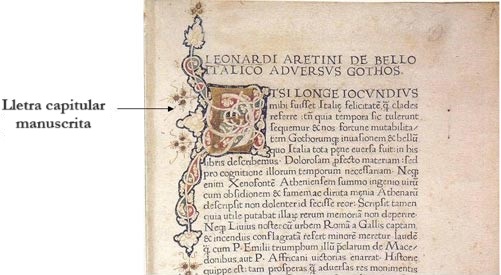 Lletra capitular
manuscrita
LEONARDI ARETINI DE BELLO
ITALICO ADVERSVS GOTHOS.
ETSI LONGE IOCVNDIVS
mihi fuisset Italię felicitatē, q̄ clades
referre: tñ quia tempora sic tulerunt
sequemur & nos fortune mutabilita-
tem Gothorumq; inuasionem & bellū
quo Italia tota pene euersa fuit: in his
libris describemus. Dolorosam, ꝓfecto materiam: sed
pro cognitione illorum temporum necessariam. Neq;
enim Xenofontē Atheniensem summo ingenio virū
cum obsidionem & famem ac diruta męnia Athenarū
descripsit non dolenter id fecisse reor: Scripsit tamen
quia utile putabat illaꝝ rerum memoriā non deperire.
Neq; Liuius noster cū urbem Romā a Gallis captam,
& incendiis conflagratā refert minorē meretur laudē
q̄ cum P. Emilii triumphum illū p̄clarum de Mace-
donibus, aut P. Affricani uictorias enarrat. Historię
quippe est: tam prosperas q̄ aduersas res monimentis